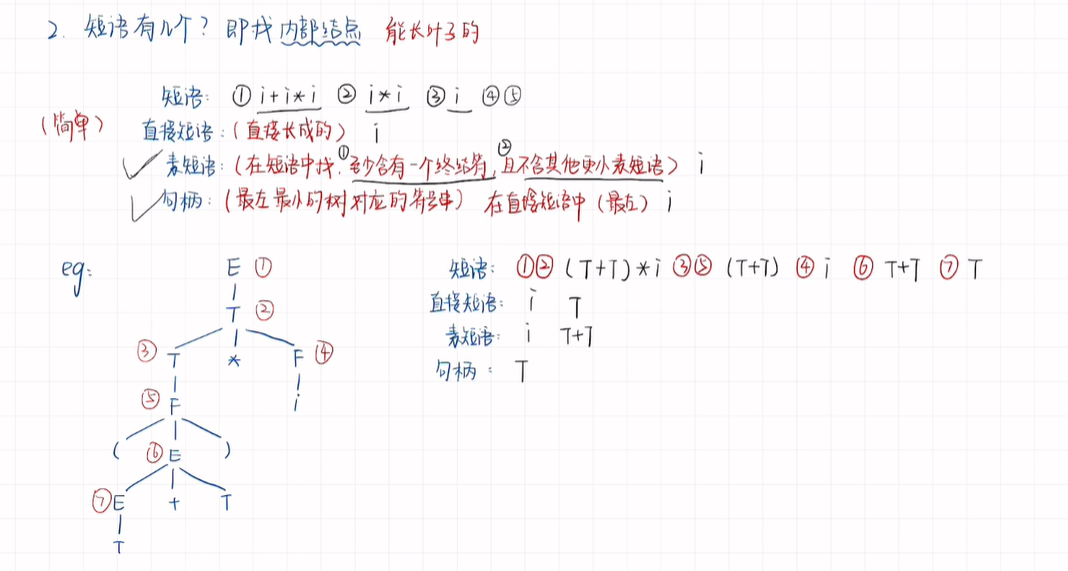 2. 短语有几个? 即找内部结点 能长叶子的
短语: ① i+i*i ② i*i ③ i ④⑤
(简单) 直接短语:(直接长成的) i
素短语:(在短语中找,①至少含有一个终结符,②且不含其他更小素短语) i
句柄:(最左最小的树对应的符号串) 在直接短语中(最左) i
eg:
E ①
T ②
③ T * F ④
⑤ F i
( ⑥ E )
⑦ E + T
T
短语: ①② (T+T)*i ③⑤ (T+T) ④ i ⑥ T+T ⑦ T
直接短语: i T
素短语: i T+T
句柄: T